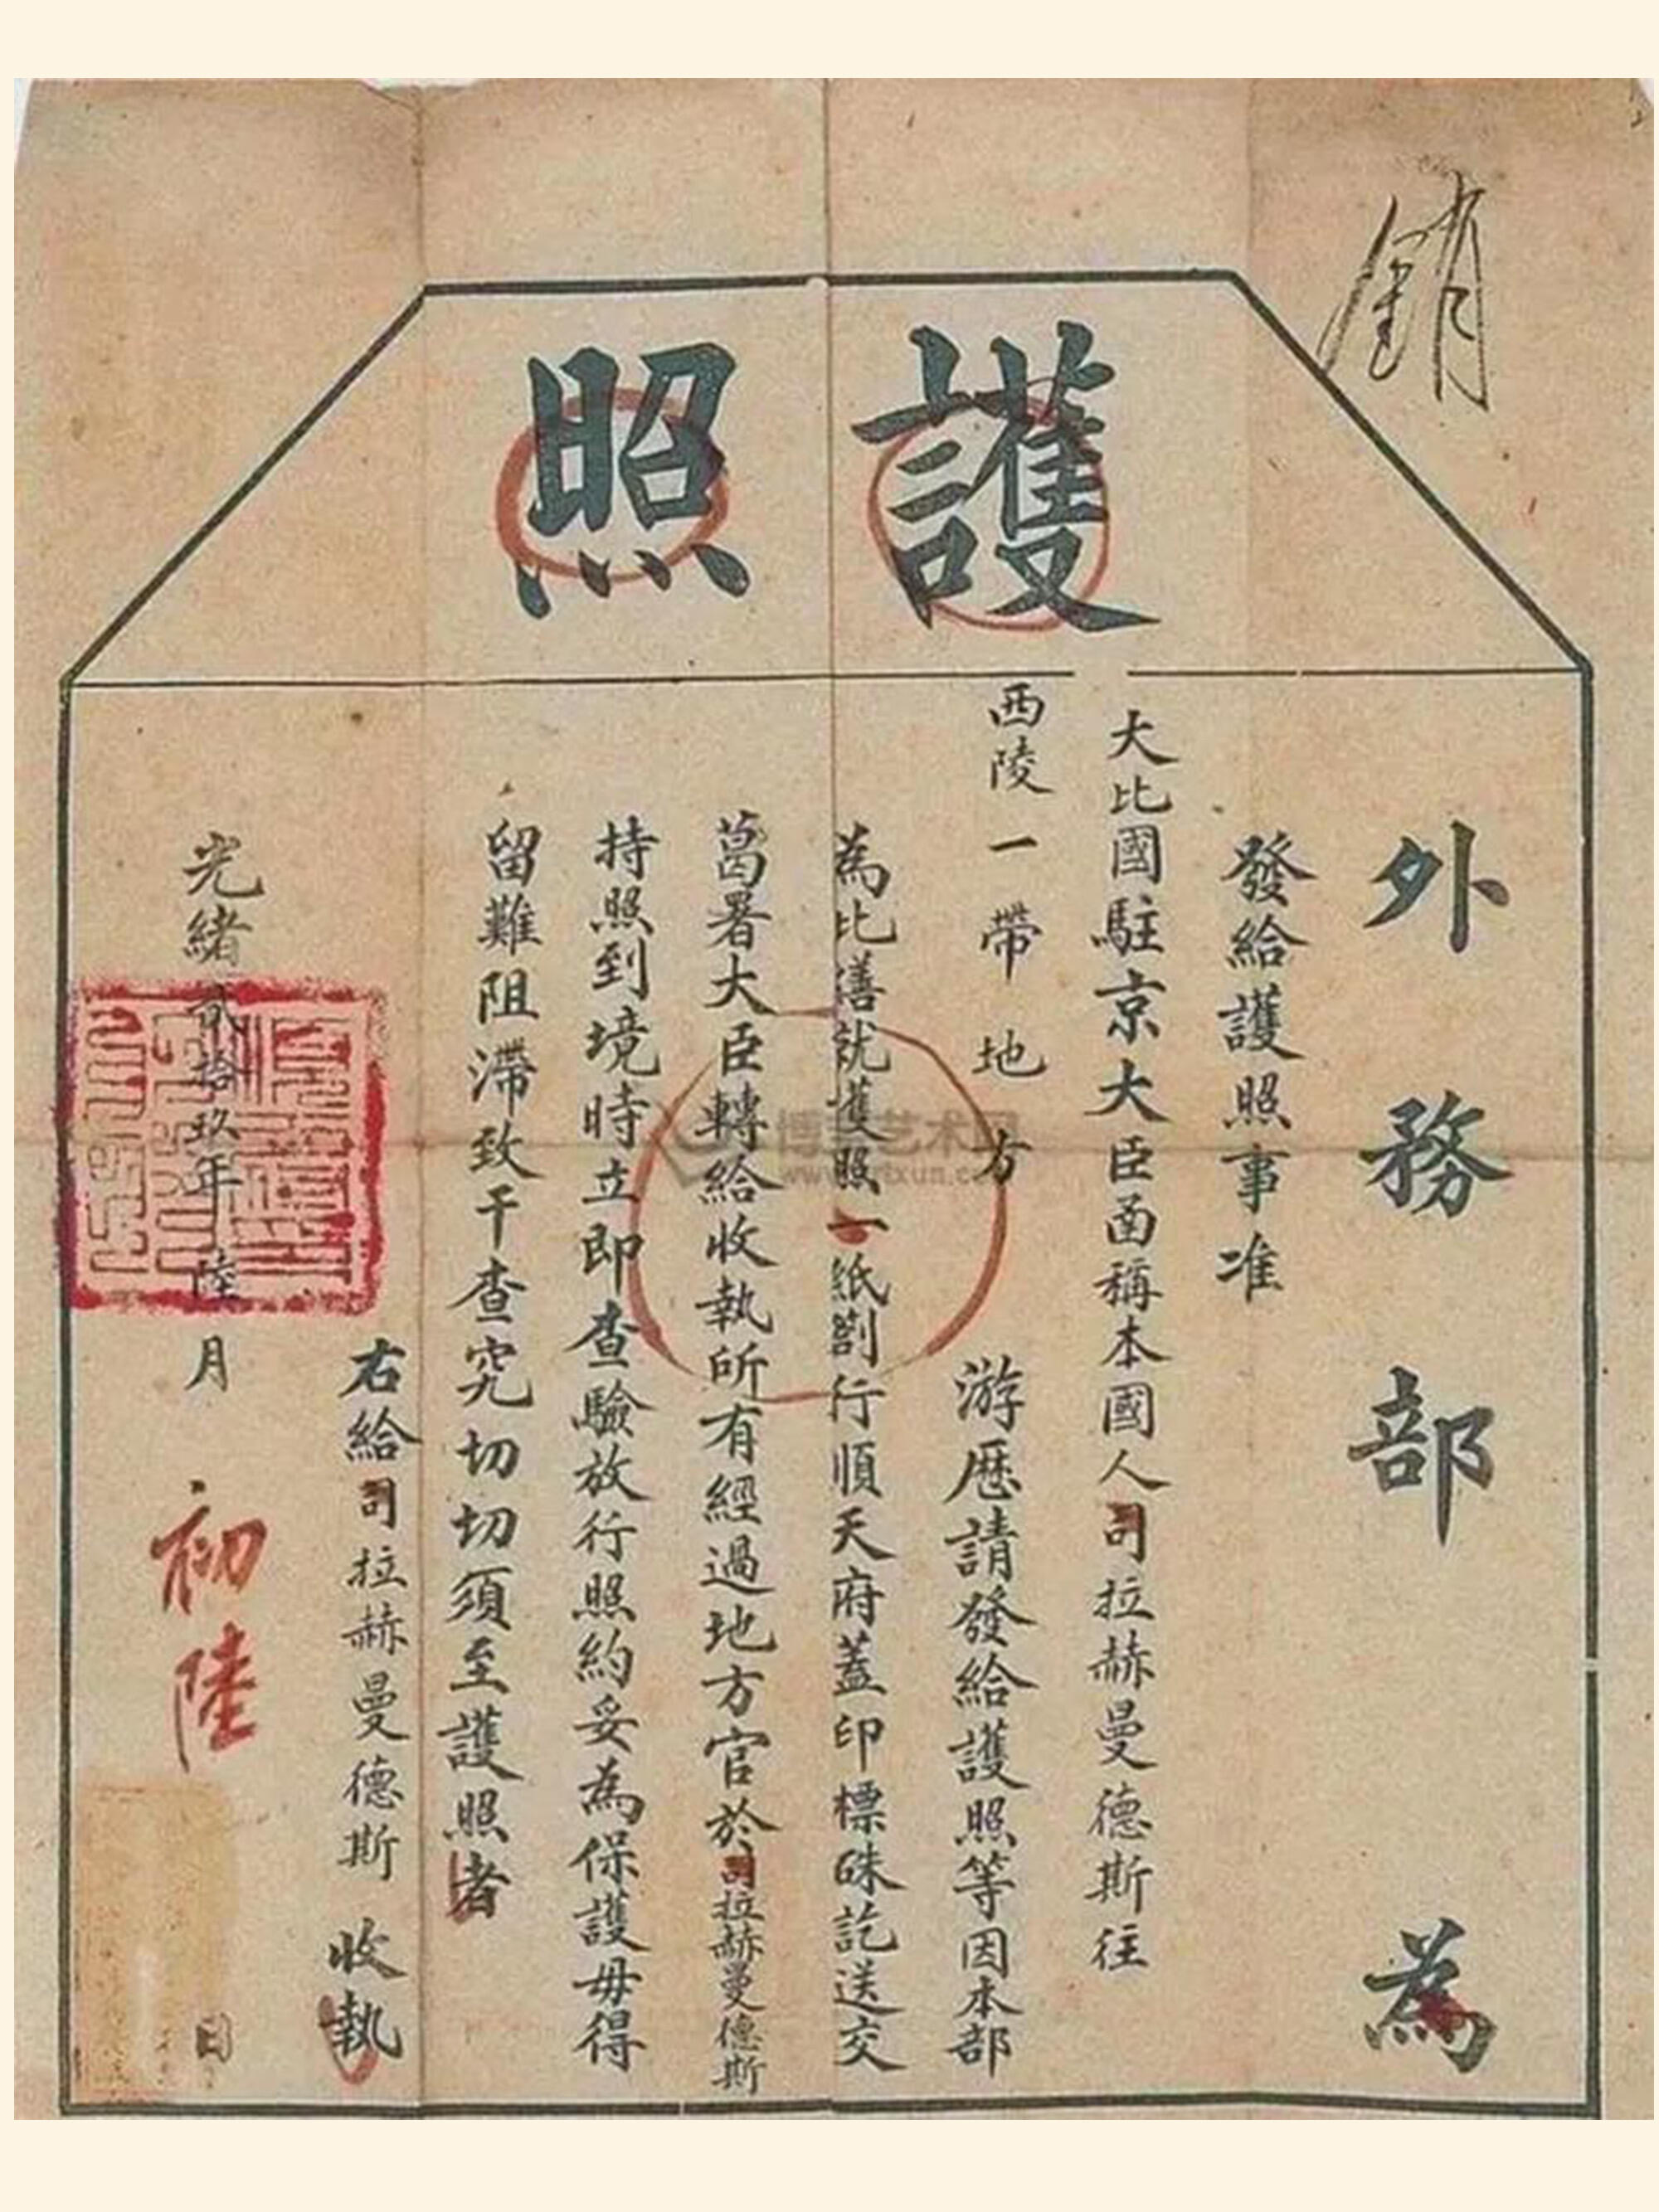 銷
護照
外務部為
發給護照事准
大比國駐京大臣函稱本國人司拉赫曼德斯往
西陵一帶地方游歷請發給護照等因本部
為比繕就護照一紙劄行順天府蓋印標硃訖送交
葛署大臣轉給收執所有經過地方官於司拉赫曼德斯
持照到境時立即查驗放行照約妥為保護毋得
留難阻滯致干查究切切須至護照者
右給司拉赫曼德斯收執
光緒貳拾玖年陸月初陸日
博宝艺术网